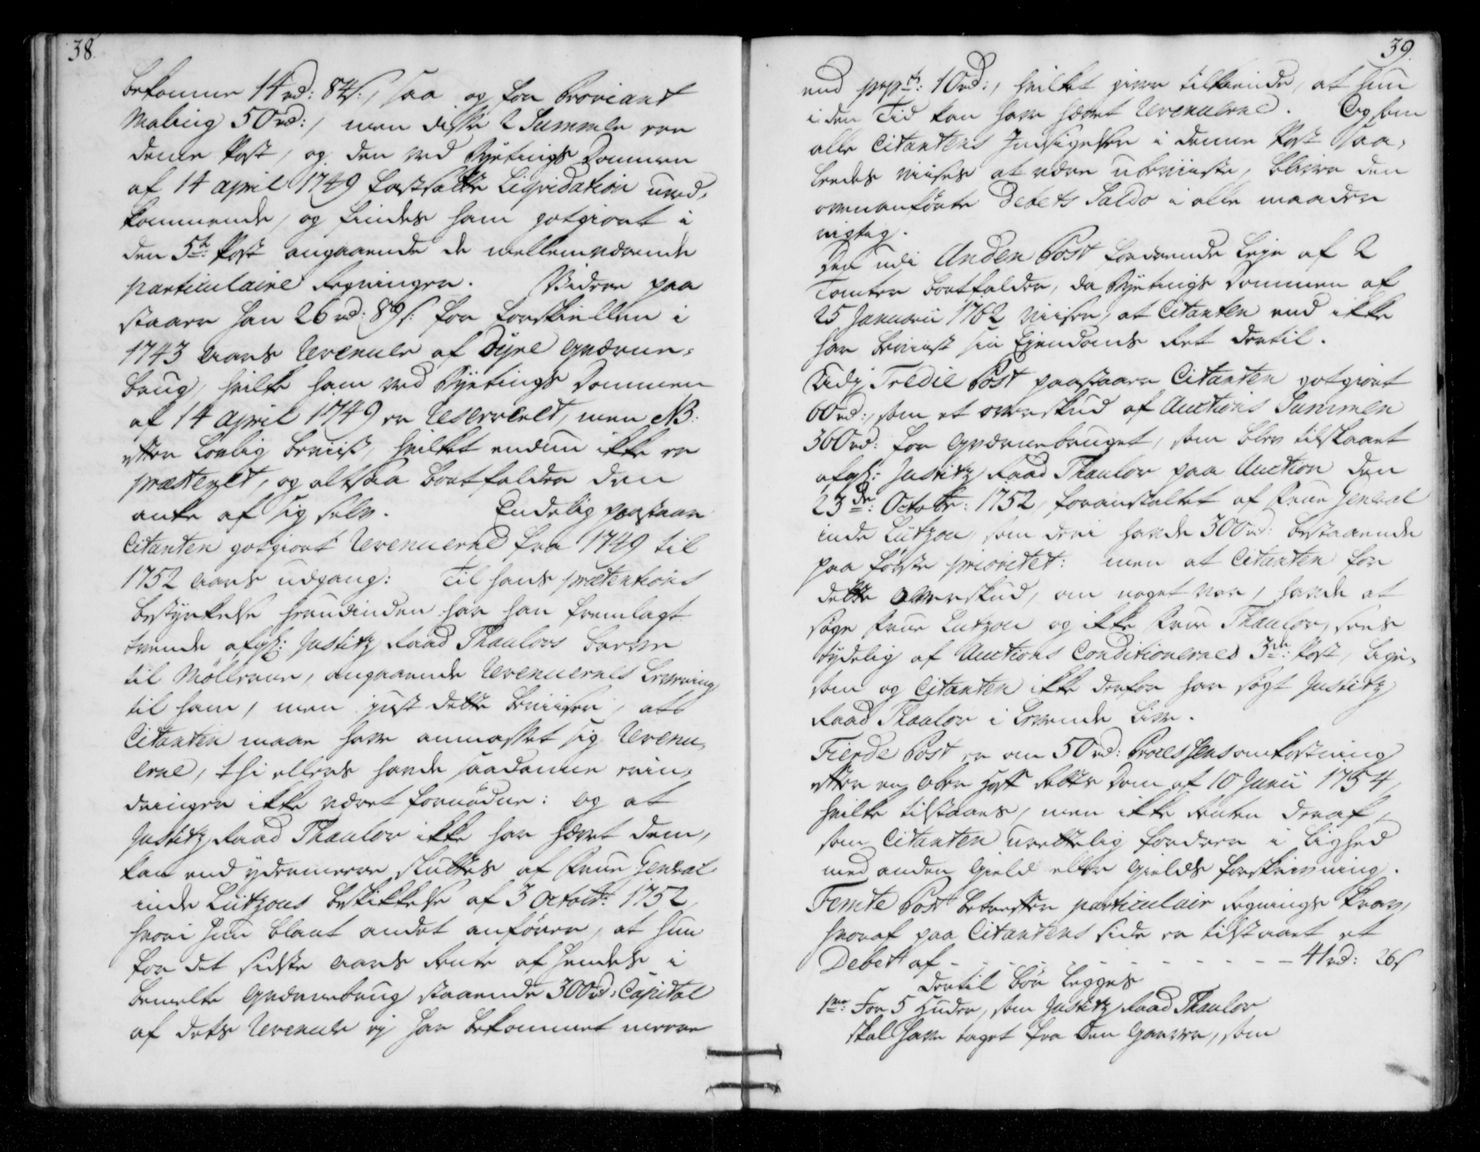 38.
bekomme 14 rd: 84 s:, saa og for Proviant
Maling 50 rd:, men disse 2 Summer er
denne Post, og den ved Byetings Dommen
af 14 April 1749 fastsatte Liqvidation uved,
kommende, og findes ham gotgiort i
den 5te Post angaaende de mellemværende
particulaire Regninger. Videre paa
staaer han 26 rd: 89 s: for forskiellen i
1743 Aars Revenuer af Dyre
hvilke ham ved Byetings Dommen
af 14 April 1749 er Reserveret, men NB:
efter Lovlig Beviis, hvilket endnu ikke er
præsteret, og altsaa bortfalder den
anke af sig selv. Endelig paastaar
Citanten gotgiort Revenuerne fra 1749 til
1752 Aars udgang: Til hans prætentions
bestyrkelse herudinden har han fremlagt
tvende afg: Justitz Raad Thaulovs breve
til Møllerne, angaaende Revenuernes Levering
til ham, men just dette beviiser, at
Citanten maae have anmasset sig Revenu,
erne, thi ellers havde saadanne erin,
dringer ikke været fornødne: og at
Justitz Raad Thaulov ikke har hævet dem,
kan end ydermeere sluttes af Frue General
inde Lützous beskikkelse af 3 Octobr: 1752,
hvori hun blant andet anfører, at hun
for det sidste Aars Rente af hendes i
bemelte staaende 300 rd: Capital
af dets Revenue ej har bekommet meere
39.
end 10 rd:, hvilket giver tilkiende, at hun
i den Tid kan have hævet Revenuerne. Og som
alle Citantens Indsigelser i denne Post saa,
ledes viises at være ubeviiste, bliver den
ovenanførte Debets Saldo i alle maader
rigtig.
Den udi Anden Post fordrende Leje af 2
Tomter bortfalder, da Byetings Dommen af
25 Januarii 1762 viiser, at Citanten end ikke
har beviist sin Ejendoms Ret dertil.
Udj Tredie Post paastaaer Citanten gotgiort
60 rd:, som et overskud af Auctions Summen
360 rd: for, som blev tilslaaet
afg: Justitz Raad Thaulov paa Auction den
23de: Octobr: 1752, foranstaltet af Frue General
inde Lützou, som deri havde 300 rd: bestaaende
paa første prioritet: men at Citanten for
dette overskud, om noget var, havde at
søge Frue Lutzou og ikke Frue Thaulov, sees
tydelig af Auctions Conditionernes 3de: Post, lige,
som og Citanten ikke derfor har søgt Justitz
Raad Thaulov i levende Live.
Fierde Post er om 50 rd: Processens omkostning
efter en Ober Hoff Rettes Dom af 10 Junii 1754,
hvilke tilstaaes, men ikke Renten deraf,
som Citanten urettelig fordrer i Lighed
med anden Gield eller Gields forskrivning.
Femte Post betreffer particulair Regnings Krav,
hvoraf paa Citantens side er tilstaaet et
Debet af - - - - - - - - - - - - 41 rd: 26 s
Dertil bør legges
1mo: For 5 Huder, som Justitz Raad Thaulov
skal have taget fra Den Garver, som